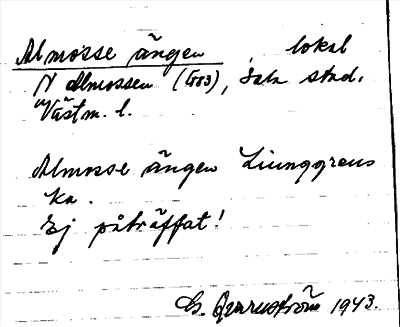 Almosse ängen, lokal
N Almossen (G83), Sala stad,
Västm. l.
Almosse ängen Ljunggrens
ka.
Ej påträffat!
1943.